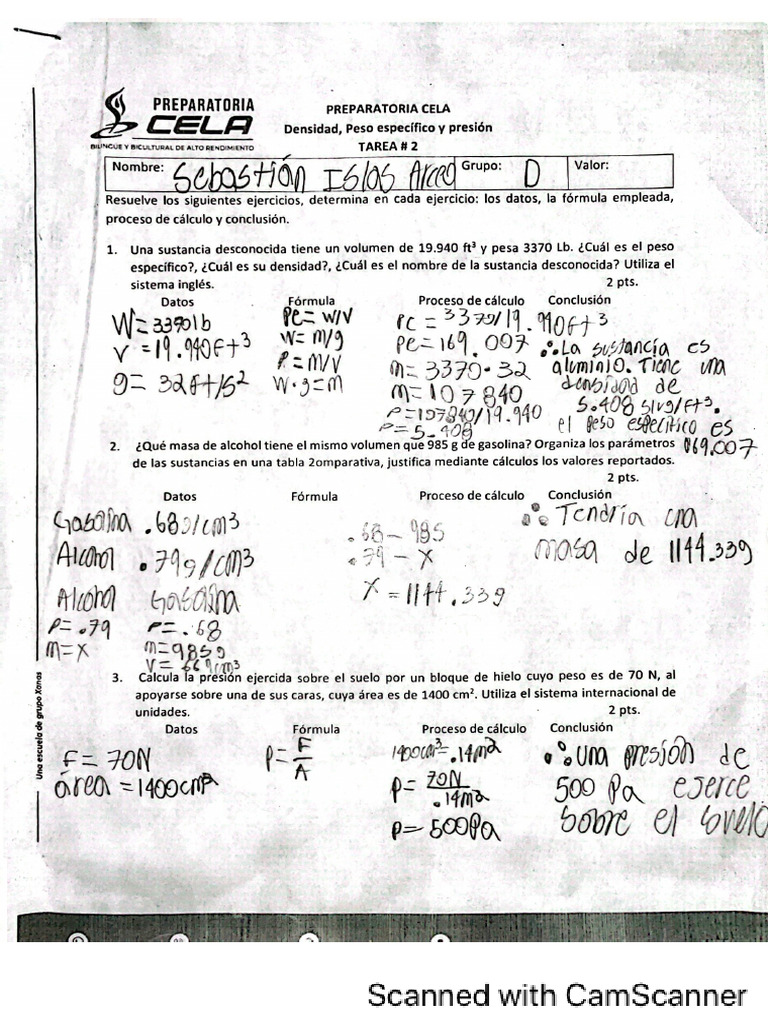 PREPARATORIA
CELA
BILINGÜE Y BICULTURAL DE ALTO RENDIMIENTO
PREPARATORIA CELA
Densidad, Peso específico y presión
TAREA # 2
Nombre: Sebastián Islas Arceo Grupo: D Valor:
Resuelve los siguientes ejercicios, determina en cada ejercicio: los datos, la fórmula empleada,
proceso de cálculo y conclusión.
1. Una sustancia desconocida tiene un volumen de 19.940 ft³ y pesa 3370 Lb. ¿Cuál es el peso
específico?, ¿Cuál es su densidad?, ¿Cuál es el nombre de la sustancia desconocida? Utiliza el
sistema inglés. 2 pts.
Datos Fórmula Proceso de cálculo Conclusión
W=3370lb Pe= W/V Pe = 3370/19.940ft3
V =19.940ft3 W= m/g Pe=169.007 ∴La sustancia es
g= 32ft/s² ρ=m/V m= 3370·32 aluminio. Tiene una
W·g=m m=107840 densidad de
ρ=107840/19.940 5.408 slug/ft3.
ρ=5.408 el peso específico es
169.007
2. ¿Qué masa de alcohol tiene el mismo volumen que 985 g de gasolina? Organiza los parámetros
de las sustancias en una tabla 2omparativa, justifica mediante cálculos los valores reportados.
2 pts.
Datos Fórmula Proceso de cálculo Conclusión
Gasolina .68g/cm3 .68-985 ∴ Tendría una
Alcohol .79g/cm3 .79-X masa de 1144.33g
Alcohol Gasolina X=1144.33g
ρ=.79 ρ=.68
m=x m=985g
V= cm3
3. Calcula la presión ejercida sobre el suelo por un bloque de hielo cuyo peso es de 70 N, al
apoyarse sobre una de sus caras, cuya área es de 1400 cm². Utiliza el sistema internacional de
unidades. 2 pts.
Datos Fórmula Proceso de cálculo Conclusión
F=70N P=F/A 1400cm²=.14m2 ∴Una presión de
área=1400cm2 P=70N/.14m2 500 Pa ejerce
P=500Pa sobre el suelo
Una escuela de grupo Xanas
Scanned with CamScanner